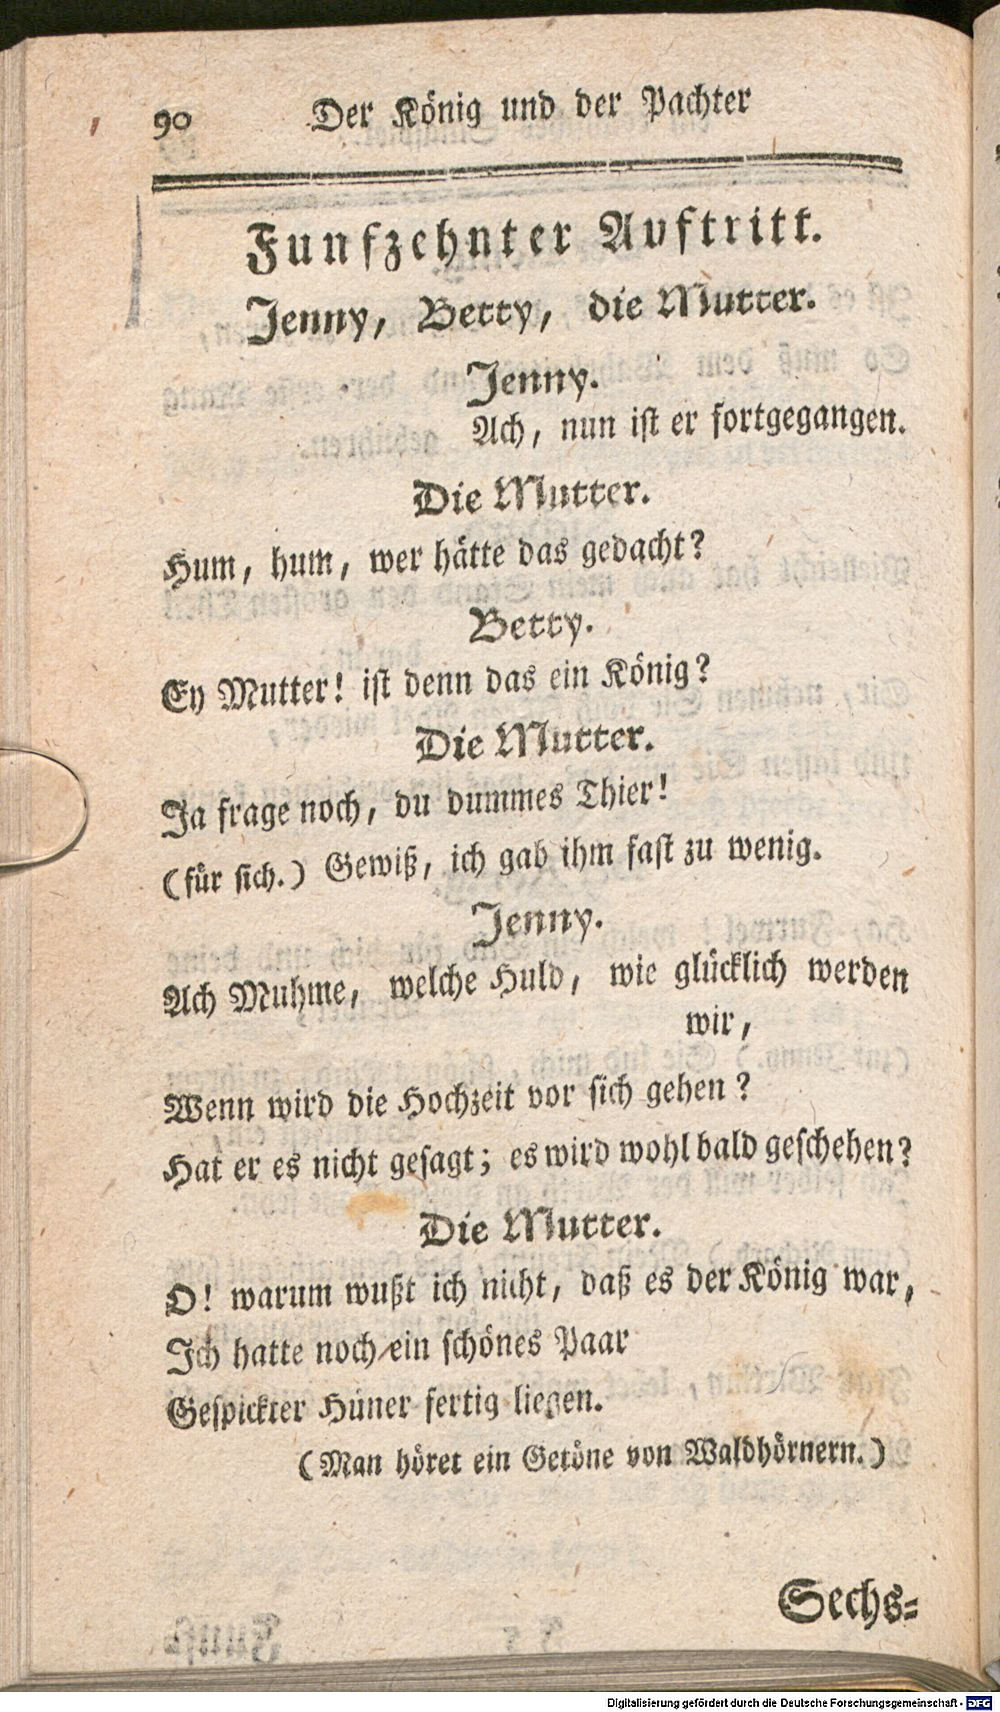 90 Der König und der Pachter
Funfzehnter Auftritt.
Jenny, Betty, die Mutter.
Jenny.
Ach, nun ist er fortgegangen.
Die Mutter.
Hum, hum, wer hätte das gedacht?
Betty.
Ey Mutter! ist denn das ein König?
Die Mutter.
Ja frage noch, du dummes Thier!
(für sich.) Gewiß, ich gab ihm fast zu wenig.
Jenny.
Ach Muhme, welche Huld, wie glücklich werden
wir,
Wenn wird die Hochzeit vor sich gehen?
Hat er es nicht gesagt; es wird wohl bald geschehen?
Die Mutter.
O! warum wußt ich nicht, daß es der König war,
Ich hatte noch ein schönes Paar
Gespickter Hüner fertig liegen.
(Man höret ein Getöne von Waldhörnern.)
Sechs-
Digitalisierung gefördert durch die Deutsche Forschungsgemeinschaft - DFG